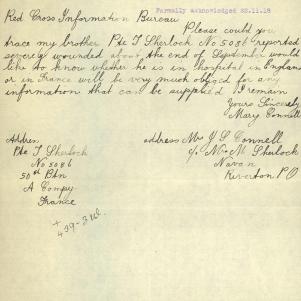 Red Cross Information Bureau
Formally acknowledged 22.11.18
Please could you
trace my brother Pte T Sherlock No 5086 reported
severely wounded about the end of September would
like to know whether he is in hospital in England
or in France will be very much obliged for any
information that can be supplied I remain
Yours Sincerely
Mary Connell
Address
Pte T Sherlock
No 5086
50th Btn
A Compy
France
address Mrs Y S Connell
c/. Mr M Sherlock
Navan
Riverton PO